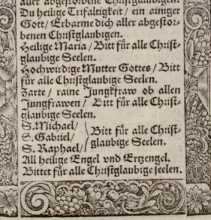 aller abgestorbene Christglaubigen.
Du heilige Trifaltigkeit / ein ainiger
Gott / Erbarme dich aller abgestor-
benen Christglaubigen.
Heilige Maria / Bitt für alle Christ-
glaubige Seelen.
Hochwürdige Mutter Gottes / Bitt
für alle Christglaubige Seelen.
Zarte / raine Jungkfraw ob allen
Jungfrawen / Bitt für alle Christ-
glaubige Seelen.
S. Michael /
S. Gabriel / Bitt für alle Christ-
S. Raphael / glaubige Seelen.
All heilige Engel vnd Ertzengel.
Bittet für alle Christglaubige seelen.